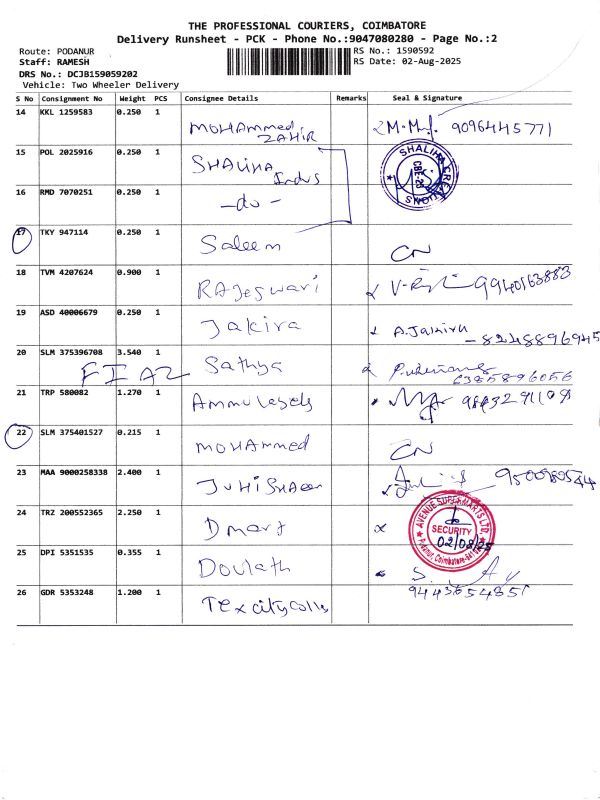 THE PROFESSIONAL COURIERS, COIMBATORE
Delivery Runsheet - PCK - Phone No.:9047080280 - Page No.:2
Route: PODANUR
RS No.: 1590592
Staff: RAMESH
RS Date: 02-Aug-2025
DRS No.: DCJB159059202
Vehicle: Two Wheeler Delivery
S No Consignment No Weight PCS Consignee Details Remarks Seal & Signature
14 KKL 1259583 0.250 1
MOHAMMED ZAHIR 9096445771
15 POL 2025916 0.250 1
SHALIHA Indus
SHALIHA CREATIONS
CBE-23
16 RMD 7070251 0.250 1
-do-
17 TKY 947114 0.250 1
Saleem CN
18 TVM 4207624 0.900 1
RAJeswari 9940163883
19 ASD 40006679 0.250 1
Jakira A.Jakira - 8248896945
20 SLM 375396708 3.540 1
Sathya
6385896056
21 TRP 580082 1.270 1
22 SLM 375401527 0.215 1
MOHAMMED CN
23 MAA 9000258338 2.400 1
24 TRZ 200552365 2.250 1
Dmart
AVENUE SUPERMARTS LTD.
SECURITY
02/08/25
Podanur, Coimbatore
25 DPI 5351535 0.355 1
Doulath
26 GDR 5353248 1.200 1
9443654851